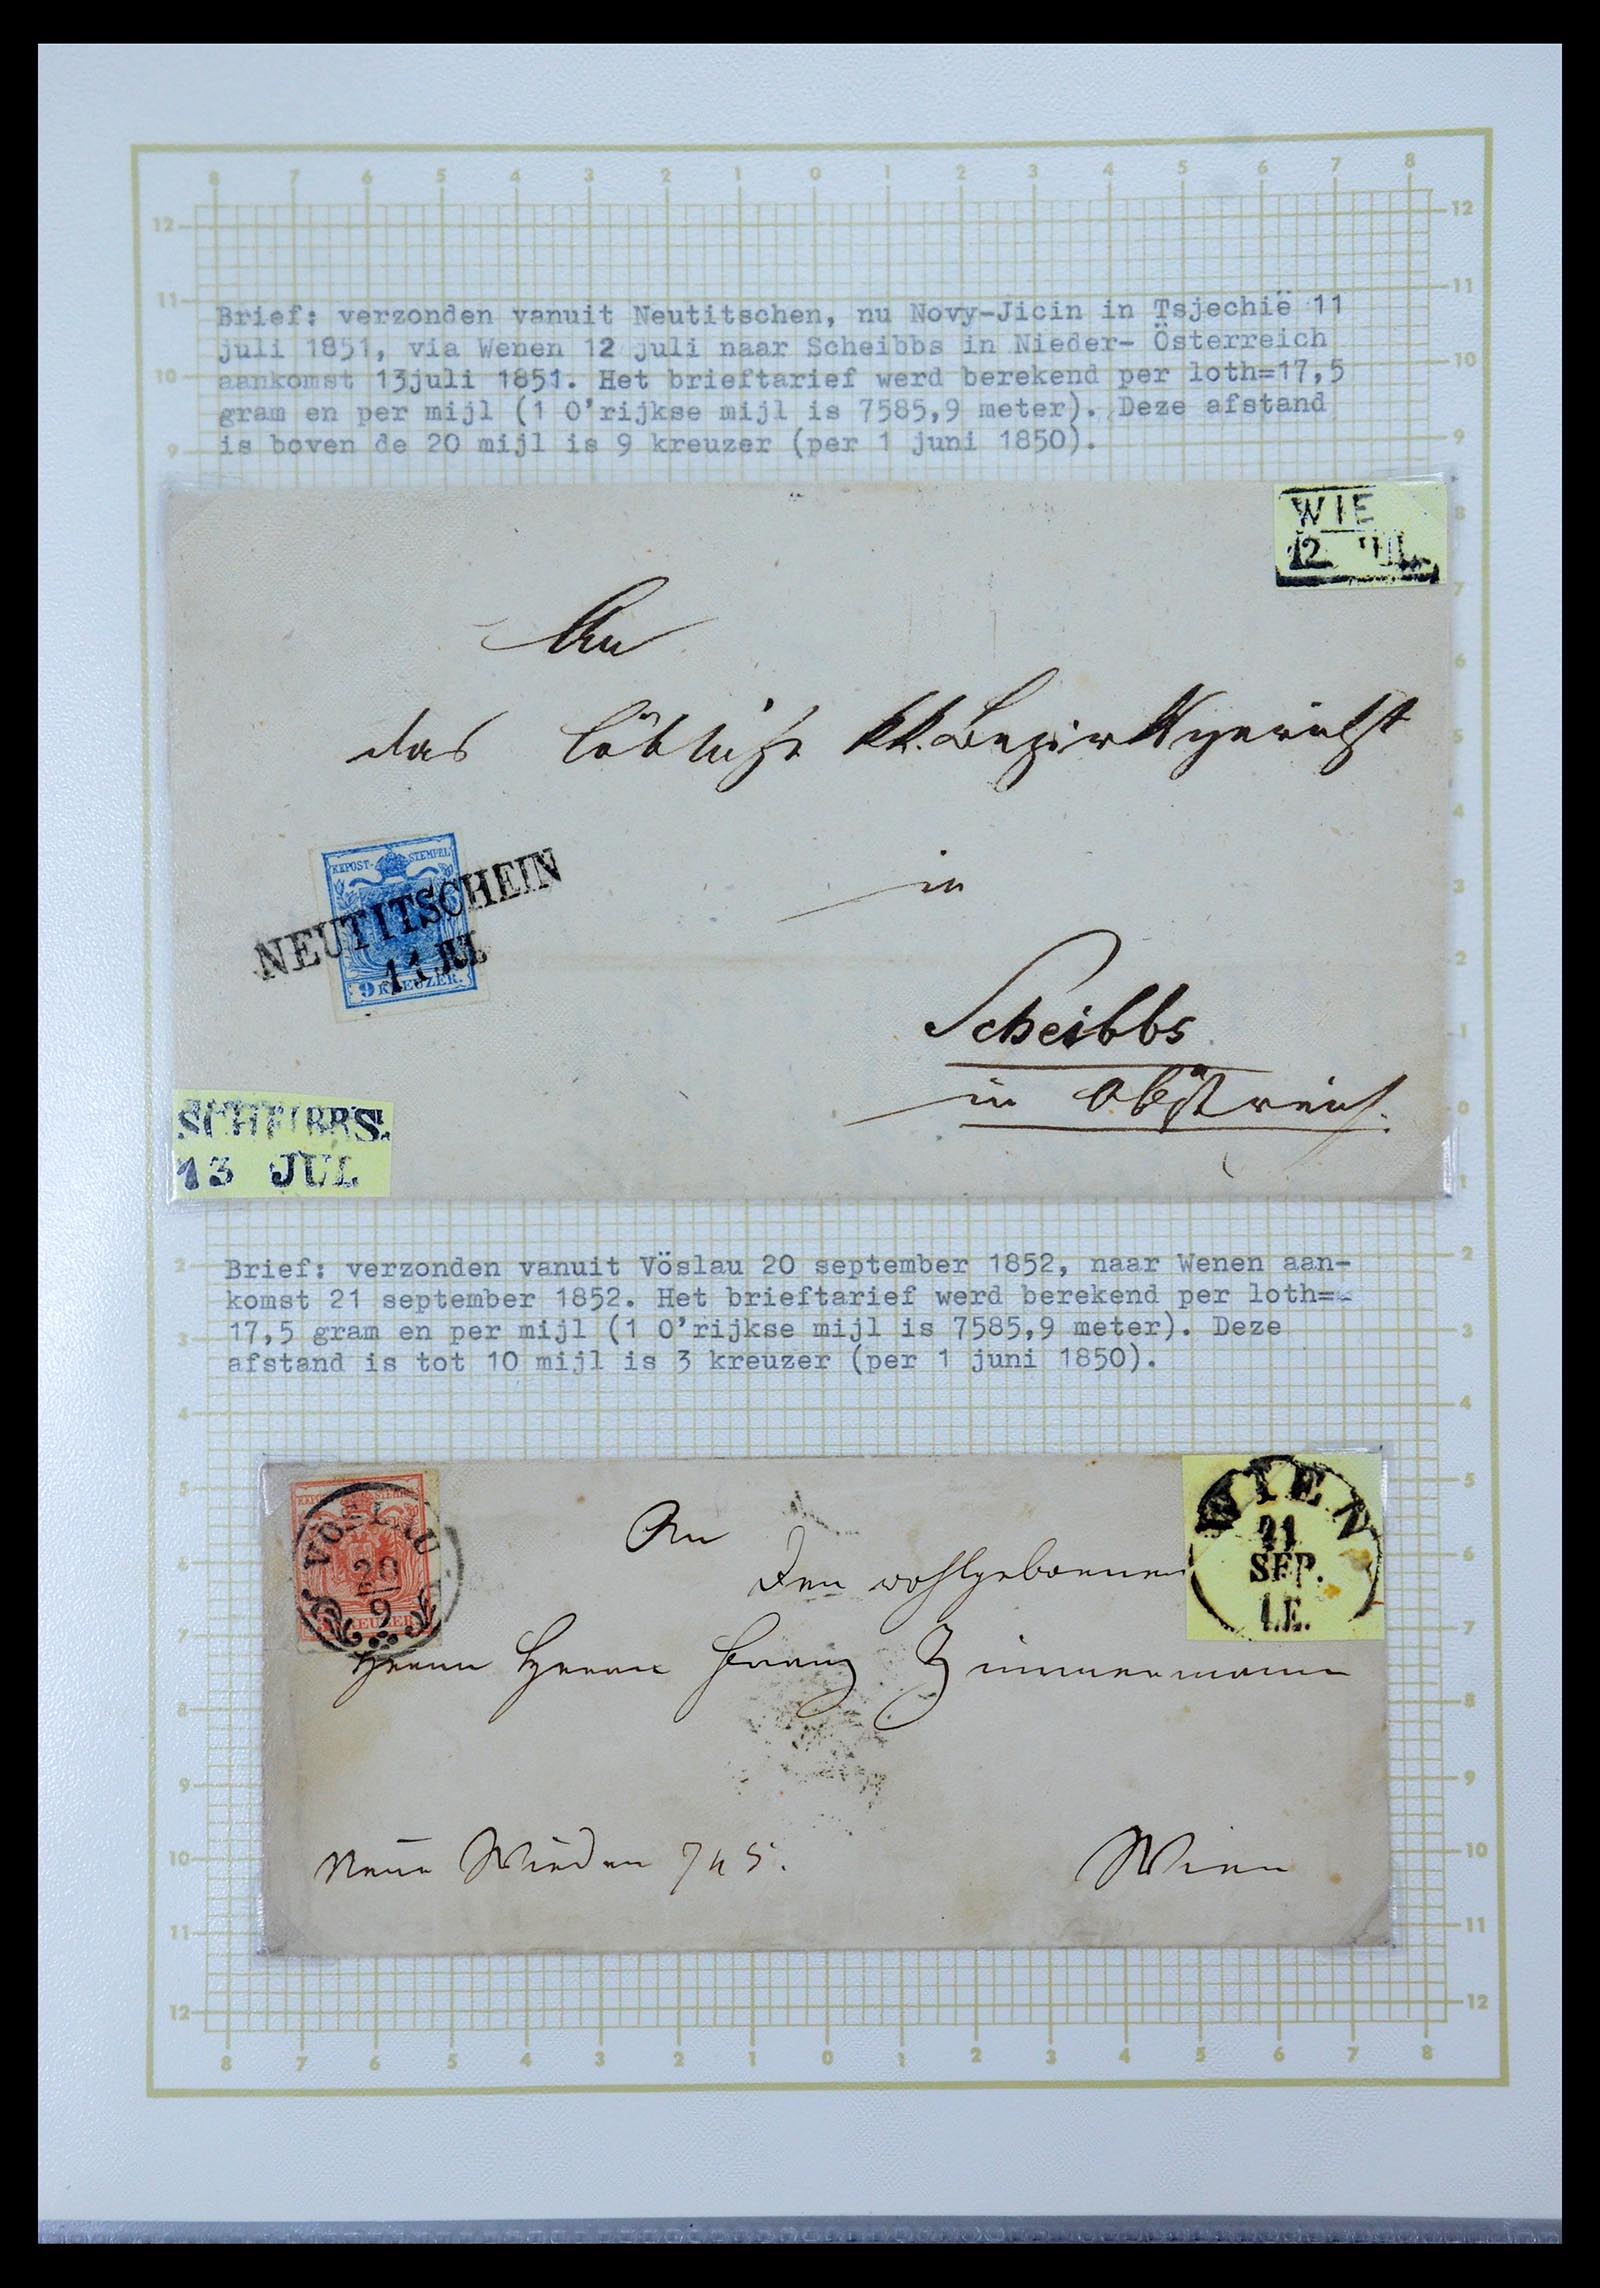 8 7 6 5 4 3 2 1 0 1 2 3 4 5 6 7 8
12 12
11 11
10 10
9 9
Brief: verzonden vanuit Neutitschen, nu Novy-Jicin in Tsjechië 11
juli 1851, via Wenen 12 juli naar Scheibbs in Nieder- Österreich
aankomst 13juli 1851. Het brieftarief werd berekend per loth=17,5
gram en per mijl (1 O'rijkse mijl is 7585,9 meter). Deze afstand
is boven de 20 mijl is 9 kreuzer (per 1 juni 1850).
WIE
12
8
7
6
5
4
3
2
1
0
1
An
das löbliche kk. Bezirksgericht
in
Scheibbs
in Obstreich.
KKPOST-STEMPEL
9 KREUZER.
NEUTITSCHEIN
11 JUL
SCHEIBBS.
13 JUL
Brief: verzonden vanuit Vöslau 20 september 1852, naar Wenen aan-
komst 21 september 1852. Het brieftarief werd berekend per loth=
17,5 gram en per mijl (1 O'rijkse mijl is 7585,9 meter). Deze
afstand is tot 10 mijl is 3 kreuzer (per 1 juni 1850).
2 2
3 3
4 4
5 5
6 6
7 7
8 8
9 9
10 10
11 11
12 12
VÖSLAU
20
9
KREUZER
WIEN
21
SEP.
I.E.
An
den wohlgebornen
Herrn Herrn Franz Zimmermann
Neue Wieden 745.
Wien
8 7 6 5 4 3 2 1 0 1 2 3 4 5 6 7 8